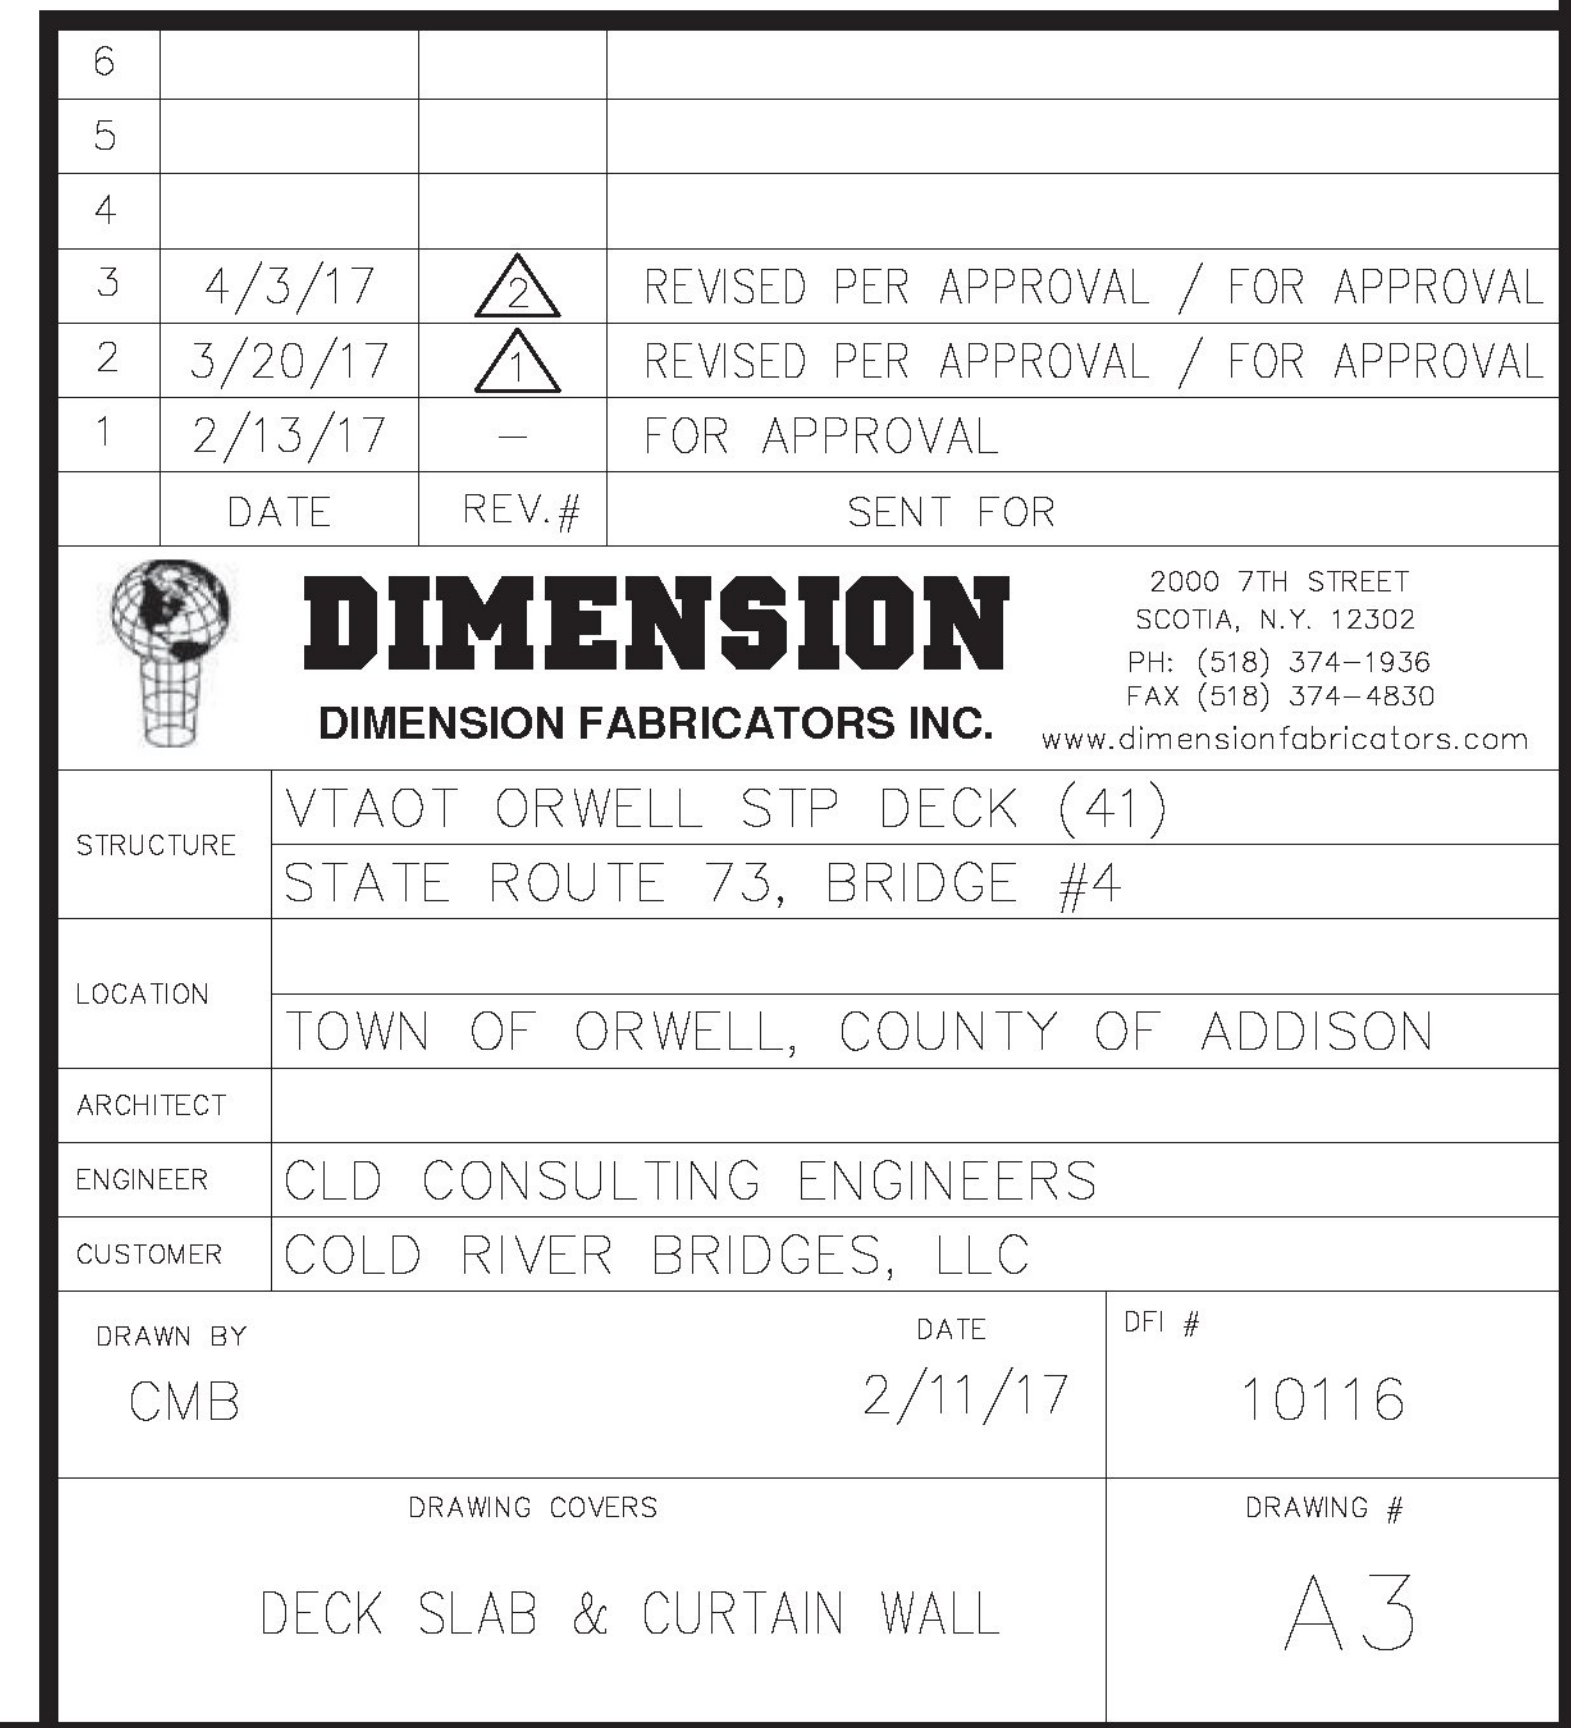 6
5
4
3 4/3/17 2 REVISED PER APPROVAL / FOR APPROVAL
2 3/20/17 1 REVISED PER APPROVAL / FOR APPROVAL
1 2/13/17 – FOR APPROVAL
DATE REV.# SENT FOR
DIMENSION
DIMENSION FABRICATORS INC.
2000 7TH STREET
SCOTIA, N.Y. 12302
PH: (518) 374-1936
FAX (518) 374-4830
www.dimensionfabricators.com
STRUCTURE
VTAOT ORWELL STP DECK (41)
STATE ROUTE 73, BRIDGE #4
LOCATION
TOWN OF ORWELL, COUNTY OF ADDISON
ARCHITECT
ENGINEER CLD CONSULTING ENGINEERS
CUSTOMER COLD RIVER BRIDGES, LLC
DRAWN BY DATE DFI #
CMB 2/11/17 10116
DRAWING COVERS DRAWING #
DECK SLAB & CURTAIN WALL A3